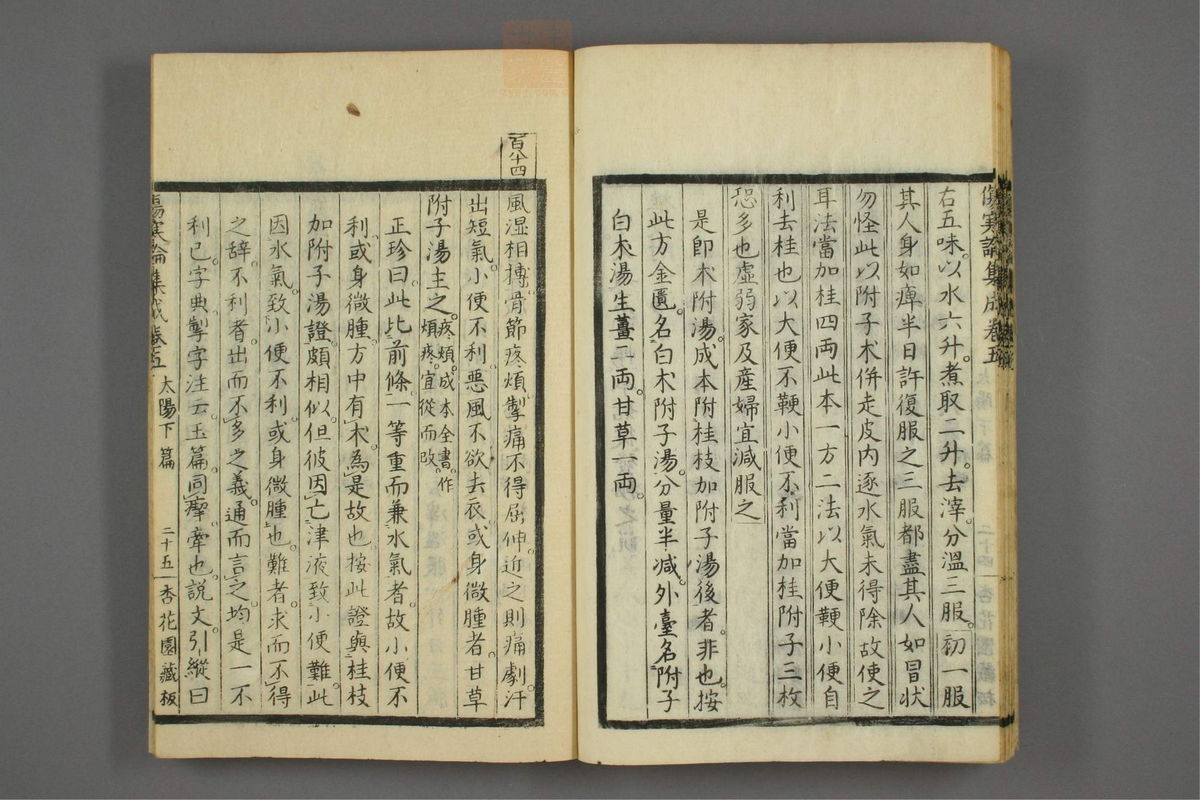 傷寒論集成卷五
右五味。以水六升。煮取二升。去滓。分溫三服。初一服
其人身如痺半日許復服之三服都盡其人如冒狀
勿怪此以附子朮併走皮內逐水氣未得除故使之
耳法當加桂四両此本一方二法以大便鞕小便自
利去桂也以大便不鞕小便不利當加桂附子三枚
恐多也虛弱家及産婦宜減服之
是即朮附湯。成本附桂枝加附子湯後者。非也。按
此方金匱。名白朮附子湯。分量半減。外臺名附子
白朮湯生薑二両。甘草一両。
百八十四
風湿相摶。骨節疼煩。掣痛不得屈伸。近之則痛劇。汗
出短氣。小便不利。惡風不欲去衣。或身微腫者。甘草
附子湯主之。疼煩。成本全書。作
煩疼。宜從而改。
正珍曰。此比前條。一等重而兼水氣者。故小便不
利。或身微腫。方中有朮。為是故也。按此證與桂枝
加附子湯證。頗相似。但彼因亡津液致小便難。此
因水氣。致小便不利。或身微腫也。難者。求而不得
之辞。不利者。出而不多之義。通而言之。均是一不
利已。字典掣字注云。玉篇。同瘈。牽也。說文。引縱曰
傷寒論集成卷五 太陽下篇 二十五 杏花園藏板